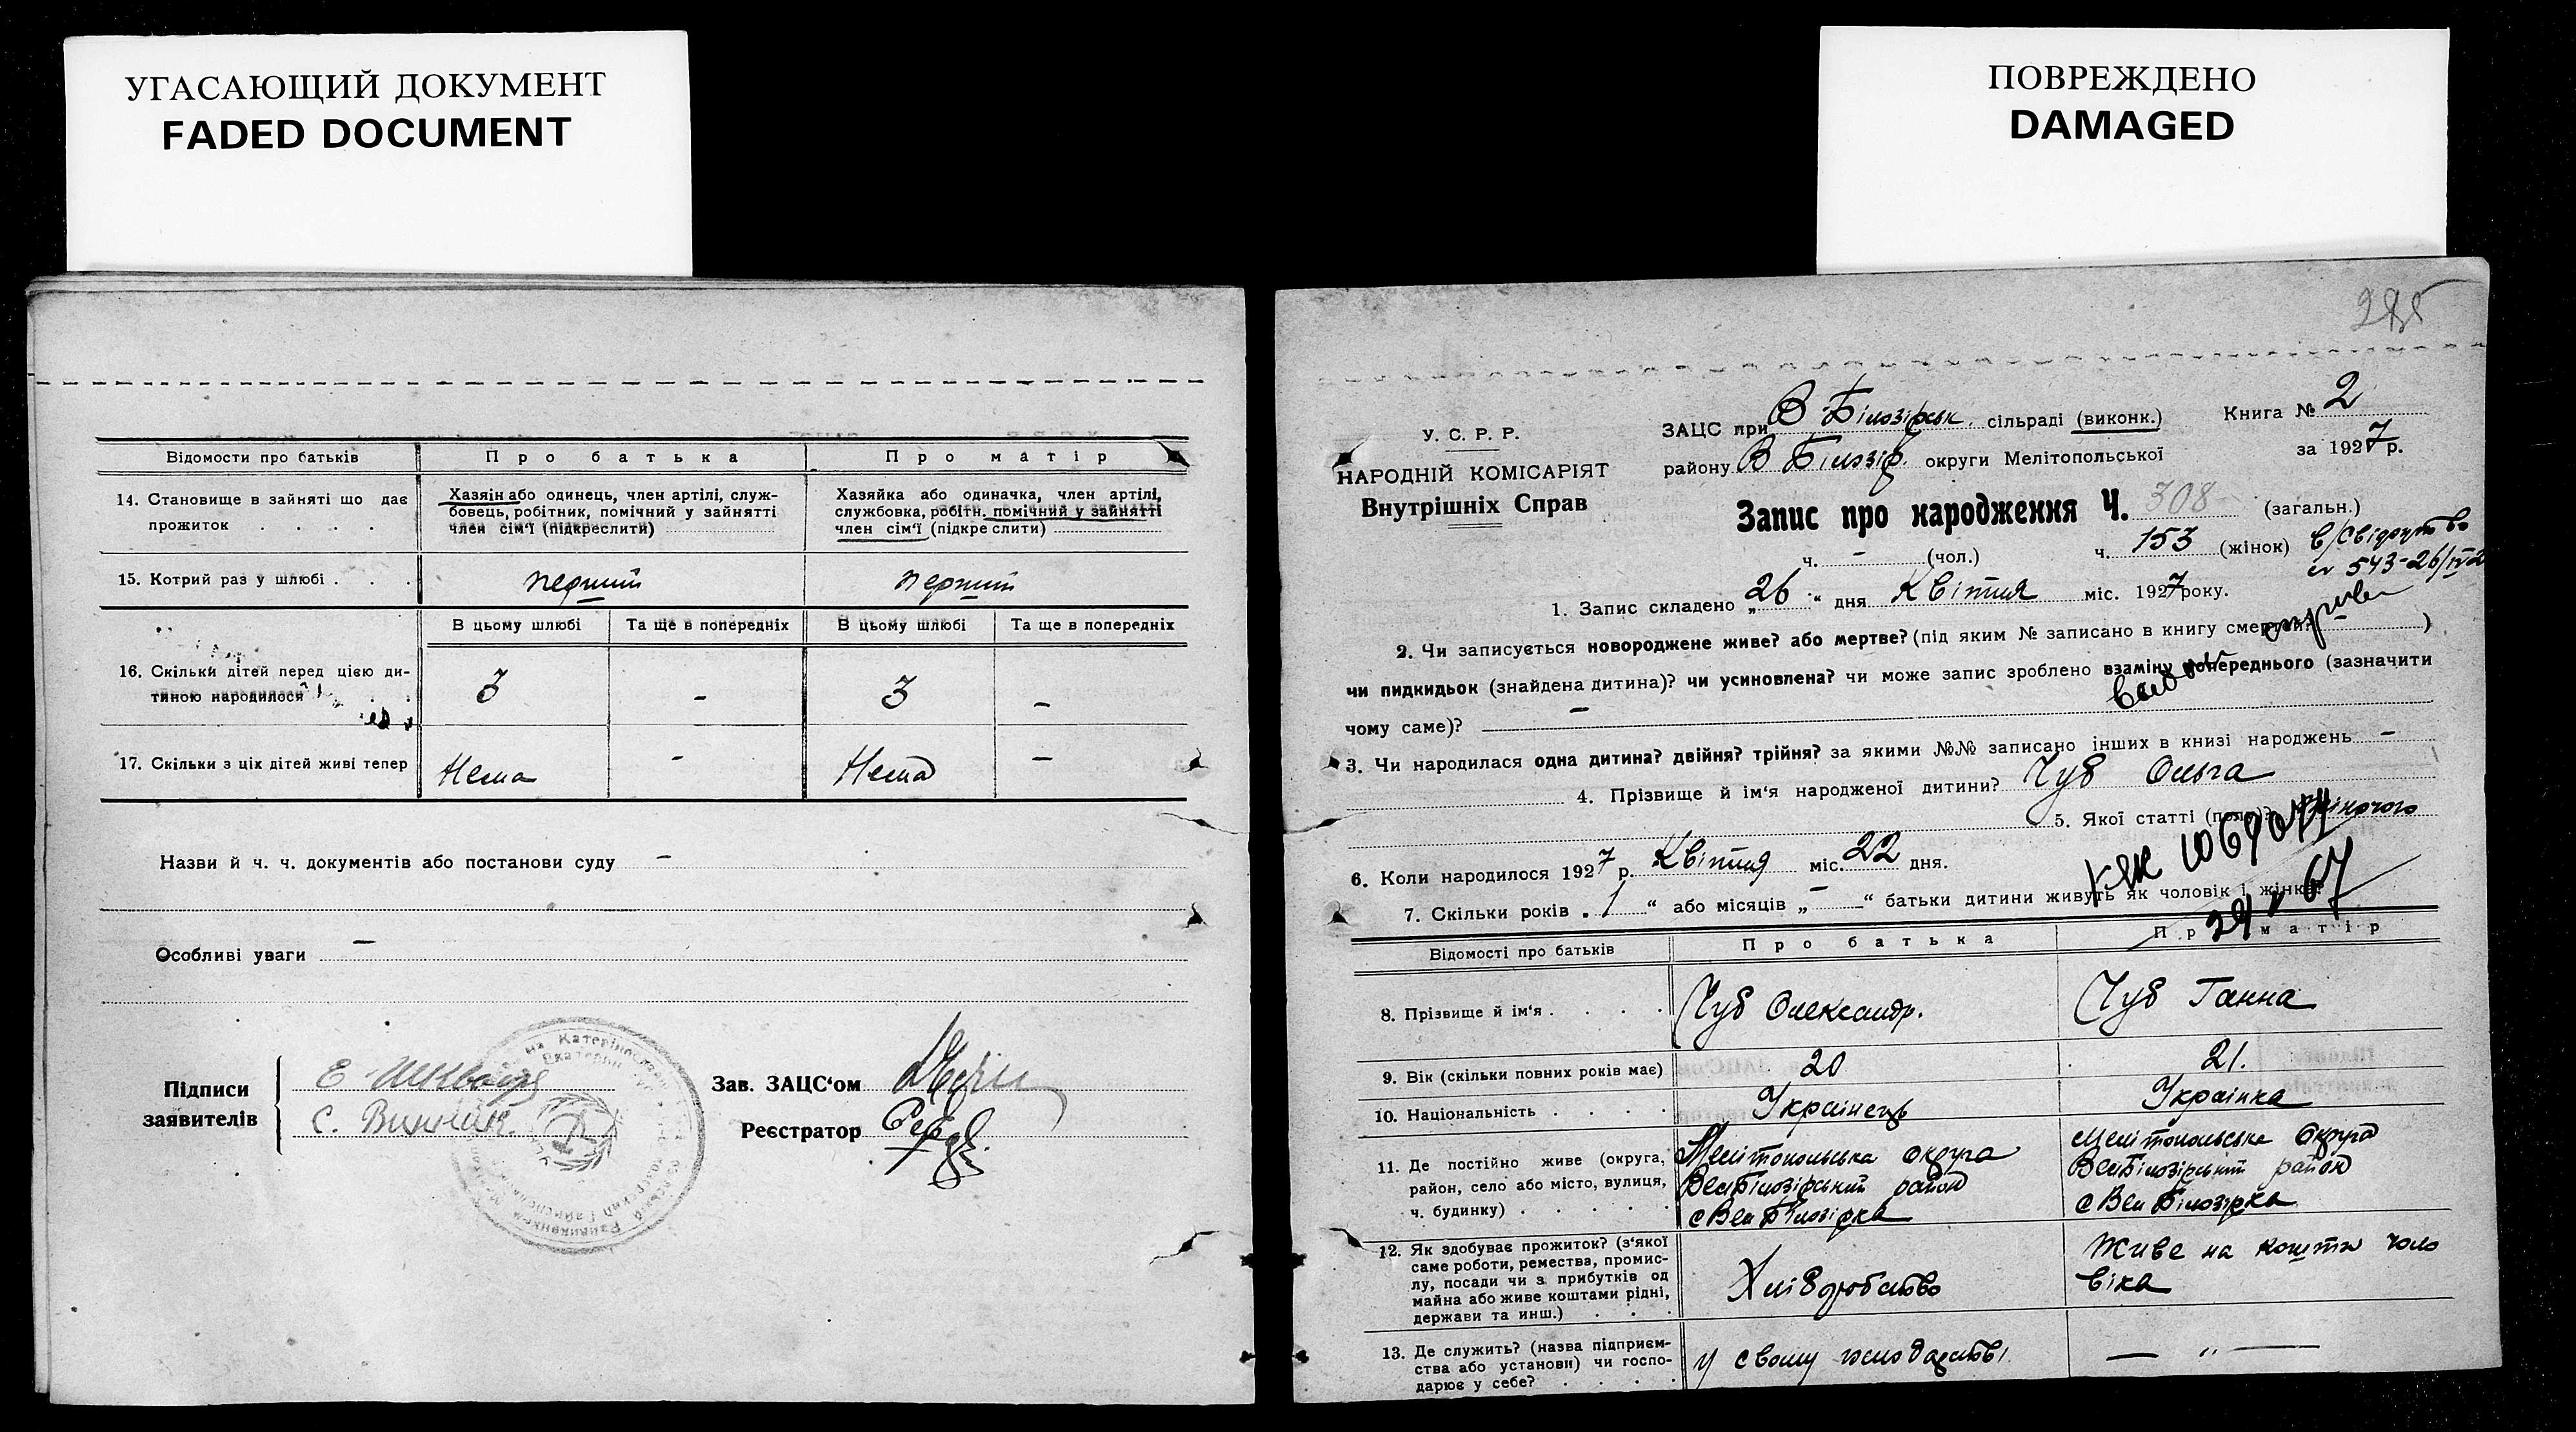 УГАСАЮЩИЙ ДОКУМЕНТ
FADED DOCUMENT
ПОВРЕЖДЕНО
DAMAGED
Відомости про батьків
Про батька
Про матір
14. Становище в зайняті що дає
прожиток . . . .
Хазяін або одинець, член артілі, служ-
бовець, робітник, помічний у зайнятті
член сім'ї (підкреслити)
Хазяйка або одиначка, член артілі,
службовка, робітн. помічний у зайнятті
член сім'ї (підкреслити)
15. Котрий раз у шлюбі . . .
перший
перший
В цьому шлюбі
Та ще в попередніх
В цьому шлюбі
Та ще в попередніх
16. Скільки дітей перед цією ди-
тиною народилося
3
-
3
-
17. Скільки з ціх дітей живі тепер
Нема
-
Нема
-
Назви й ч. ч. документів або постанови суду -
Особливі уваги -
Підписи
заявителів
С. Винник.
Зав. ЗАЦС'ом
Реєстратор
285
У. С. Р. Р.
НАРОДНІЙ КОМІСАРІЯТ
Внутрішніх Справ
ЗАЦС при В Білозірськ. сільраді (виконк.)
Книга № 2
району В Білозір. округи Мелітопольської
за 1927 р.
Запис про народження Ч. 308 (загальн.)
ч. - (чол.)
ч. 153 (жінок)
1. Запис складено „26“ дня Квітня міс. 1927 року.
2. Чи записується новороджене живе? або мертве? (під яким № записано в книгу смертей? )
чи пидкидьок (знайдена дитина)? чи усиновлена? чи може запис зроблено взаміну попереднього (зазначити
чому саме)? -
3. Чи народилася одна дитина? двійня? трійня? за якими №№ записано інших в книзі народжень -
4. Прізвище й ім'я народженої дитини? Чуб Ольга
5. Якої статті (пола)? жіночого
6. Коли народилося 1927 р. Квітня міс. 22 дня.
7. Скільки років „1“ або місяців „-“ батьки дитини живуть як чоловік і жінка?
Відомості про батьків
Про батька
Про матір
8. Прізвище й ім'я . . . .
Чуб Олександр.
Чуб Ганна
9. Вік (скільки повних років має)
20
21.
10. Національність . . . .
Українець
Українка
11. Де постійно живе (округа,
район, село або місто, вулиця,
ч. будинку) . . . . .
Мелітопольська округа
Вел Білозірський район
с Вел Білозірка
Мелітопольська Округа
Вел Білозірський район
с Вел Білозірка
12. Як здобуває прожиток? (з'якої
саме роботи, ремества, промис-
лу, посади чи з прибутків од
майна або живе коштами рідні,
держави та инш.) . . .
Хліборобство
Живе на кошти чоло
віка
13. Де служить? (назва підприєм-
ства або установи) чи госпо-
дарює у себе? . . . .
у свому господарстві.
— „ —